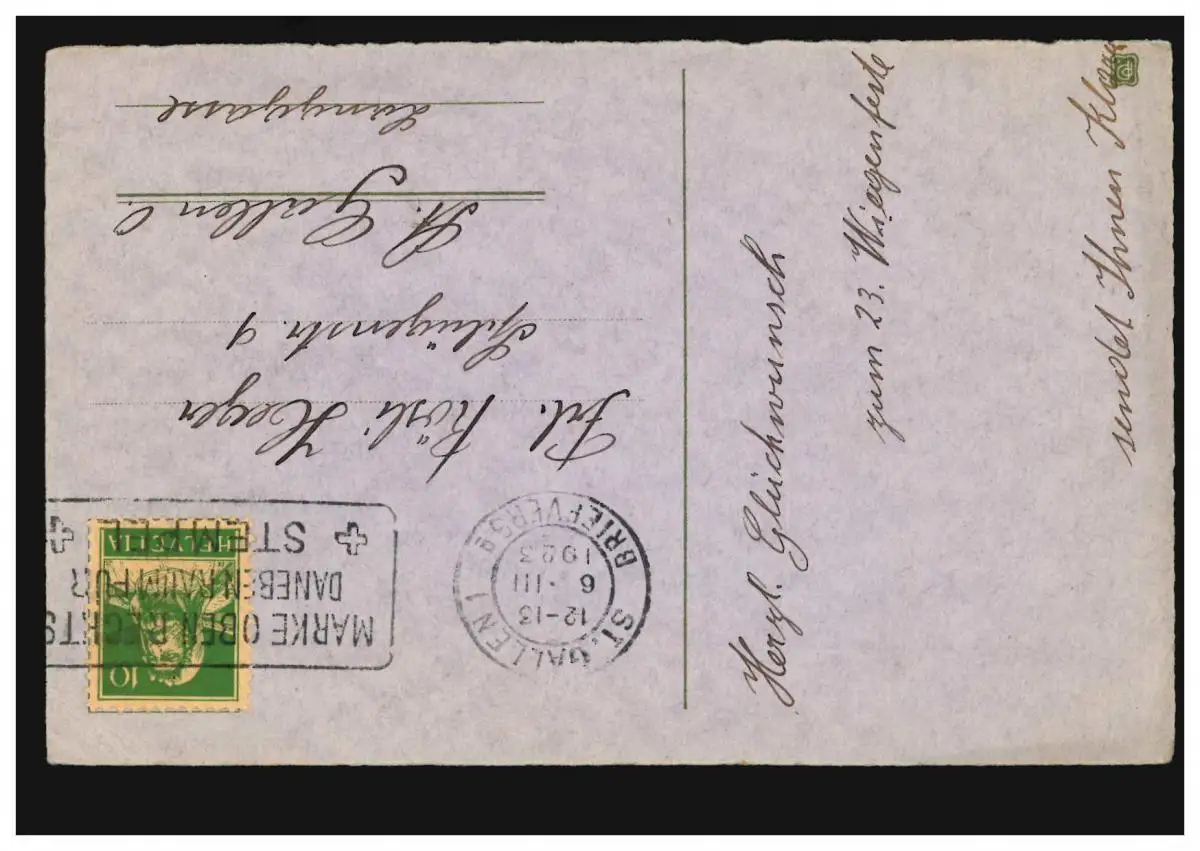 Herzl. Glückwunsch
zum 23. Wiegenfeste
sendet Ihnen
ST. GALLEN 1
12-13
6.III
1923
BRIEFVERS.
MARKE OBEN RECHTS
DANEBEN RAUM FÜR
STEMPEL
10
HELVETIA
Frl. Rösli Heeger
Splügenstr 9
St. Gallen O.
Langgasse